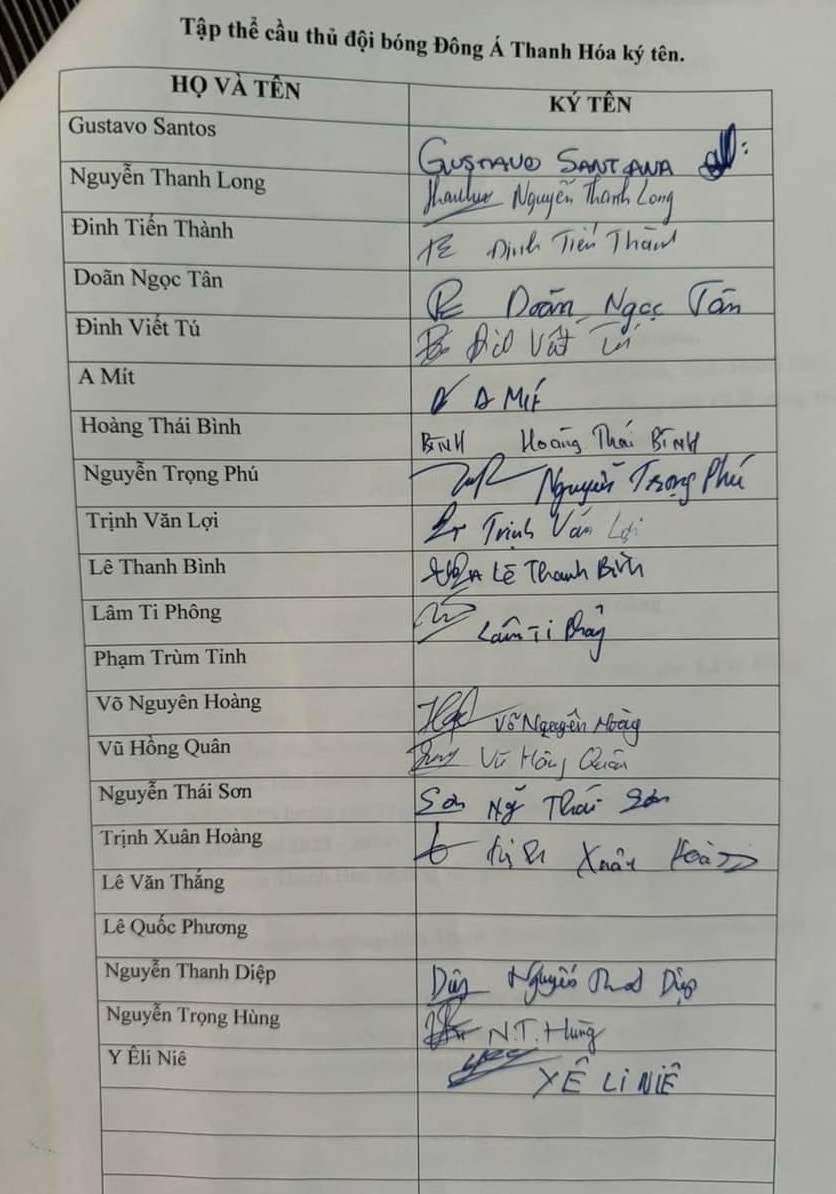 Tập thể cầu thủ đội bóng Đông Á Thanh Hóa ký tên.
HỌ VÀ TÊN KÝ TÊN
Gustavo Santos GUSTAVO SANTANA
Nguyễn Thanh Long Nguyễn Thanh Long
Đinh Tiến Thành Đinh Tiến Thành
Doãn Ngọc Tân Doãn Ngọc Tân
Đinh Viết Tú
A Mít A MÍT
Hoàng Thái Bình BÌNH Hoàng Thái BÌNH
Nguyễn Trọng Phú Nguyễn Trọng Phú
Trịnh Văn Lợi Trịnh Văn Lợi
Lê Thanh Bình Lê Thanh Bình
Lâm Ti Phông Lâm Ti Phông
Phạm Trùm Tỉnh
Võ Nguyên Hoàng Võ Nguyên Hoàng
Vũ Hồng Quân Vũ Hồng Quân
Nguyễn Thái Sơn Sơn Ng~ Thái Sơn
Trịnh Xuân Hoàng Xuân Hoàng
Lê Văn Thắng
Lê Quốc Phương
Nguyễn Thanh Diệp Nguyễn Diệp
Nguyễn Trọng Hùng N.T. Hùng
Y Êli Niê Y Ê LI NIÊ